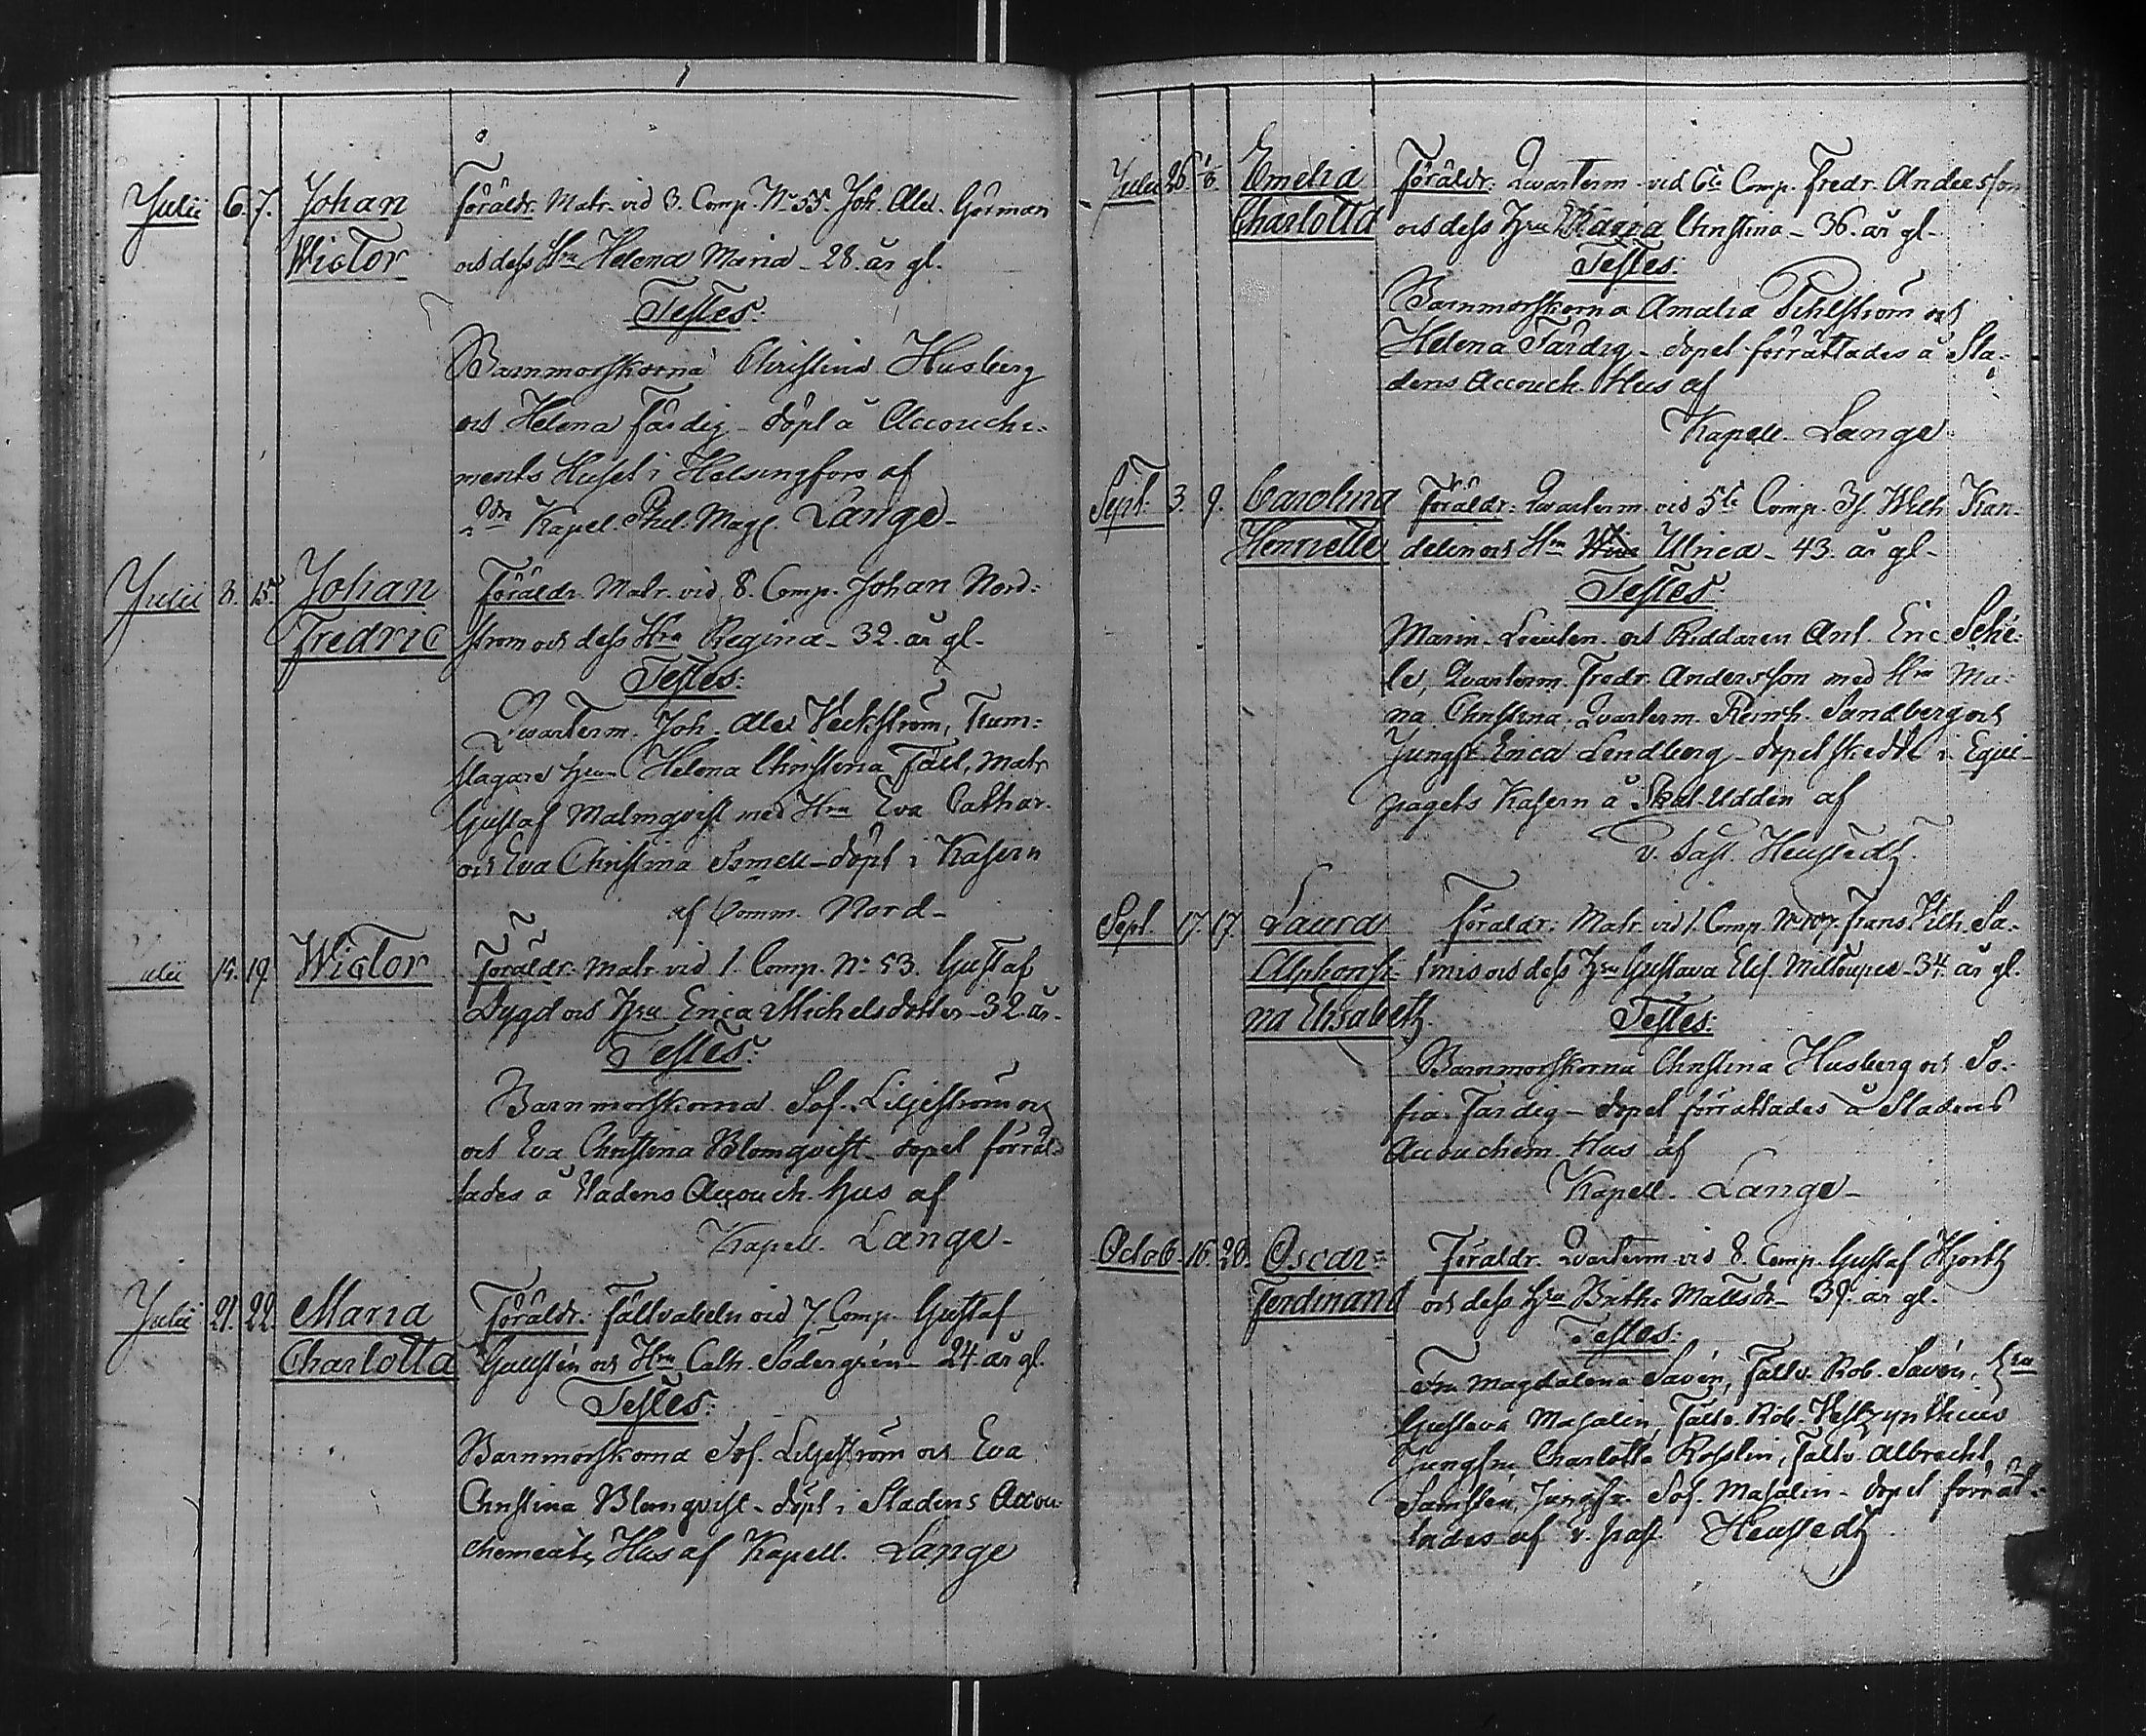 Julii 6. 7. Johan Föräldr. Matr. vid 3. Comp. No 55. Joh. Alex. Görman
Wictor och dess Hru Helena Maria - 28. år gl.
Testes:
Barnmorskorna Christina Husberg
och Helena Färdig - döpt å Accouche-
ments Huset i Helsingfors af
2dre Kapel. Phil. Mag. Lange -
Julii 8. 15. Johan Föräldr. Matr. vid 8. Comp. Johan Nord-
Fredric ström och dess Hru Regina - 32. år gl.
Testes:
Qvarterm. Joh. Alex Veckström, Trum-
slagare Hru Helena Christina Fält, Matr
Gustaf Malmqvist med Hru Eva Cathar.
och Eva Christina - döpt i Kasern
af Comm. Nord -
ulii 15. 19. Wictor Föräldr. Matr. vid 1. Comp. No 53. Gustaf
Dygd och Hru Erica Michelsdotter - 32. år.
Testes:
Barnmorskorna Sof. Liljeström och
och Eva Christina Blomqvist - döpel förrät-
tades å Stadens Accouch. Hus af
Kapell. Lange -
Julii 21. 22. Maria Föräldr. Fältvabeln vid 7. Comp. Gustaf
Charlotta och Hru Cath. Södergrén - 24. år gl.
Testes:
Barnmorskorna Sof. Liljeström och Eva
Christina Blomqvist - döpt i Stadens Accou-
chements Hus af Kapell. Lange
Julii 26 1/8 Emelia Föräldr. Qvarterm. vid 6te Comp. Fredr. Andersson
Charlotta och dess Hru Maria Christina - 36. år gl -
Testes:
Barnmorskorna Amalia Pihlström och
Helena Färdig - döpel förrättades å Sta-
dens Accouch. Hus af
Kapell. Lange -
Sept: 3. 9. Carolina Föräldr: Qvarterm. vid 5te Comp. Is. Wilh. Kan-
Henriette delin och Hru Ulrica - 43. år gl -
Testes:
Marin - Lieuten. och Riddaren Ant. Eric Sché-
le, Qvarterm. Fredr. Andersson med Hru Ma-
ria Christina, Qvarterm. Reinh. Sandberg och
Jungfr. Erica Lindberg - döpel skedde i Equi-
pagets Kasern å Skat-Udden af
v. Past. Heustedt.
Sept. 17. 17. Laura Föräldr: Matr. vid 1. Comp. No 107. Frans Wilh. Sa-
Alphonsi- och dess Hru Gustava Elis. - 34. år gl.
na Elisabeth. Testes:
Barnmorskorna Christina Husberg och So-
fia Färdig - döpel förrättades å Stadens
Accouchem. Hus af
Kapell. Lange -
Octob. 16. 20. Oscar- Föräldr. Qvarterm. vid 8. Comp. Gustaf Hjorth
Ferdinand och dess Hru Britha Mattsdr - 39. år gl.
Testes:
Fru Magdalena Savén, Fältv. Rob. Savén, Hru
Gustava Masalin, Fältv. Rob.
Jungfru Charlotta Rosslin, Fältv. Albrecht
Jungfr. Sof. Masalin - döpel förrät-
tades af v. Past. Heustedt.